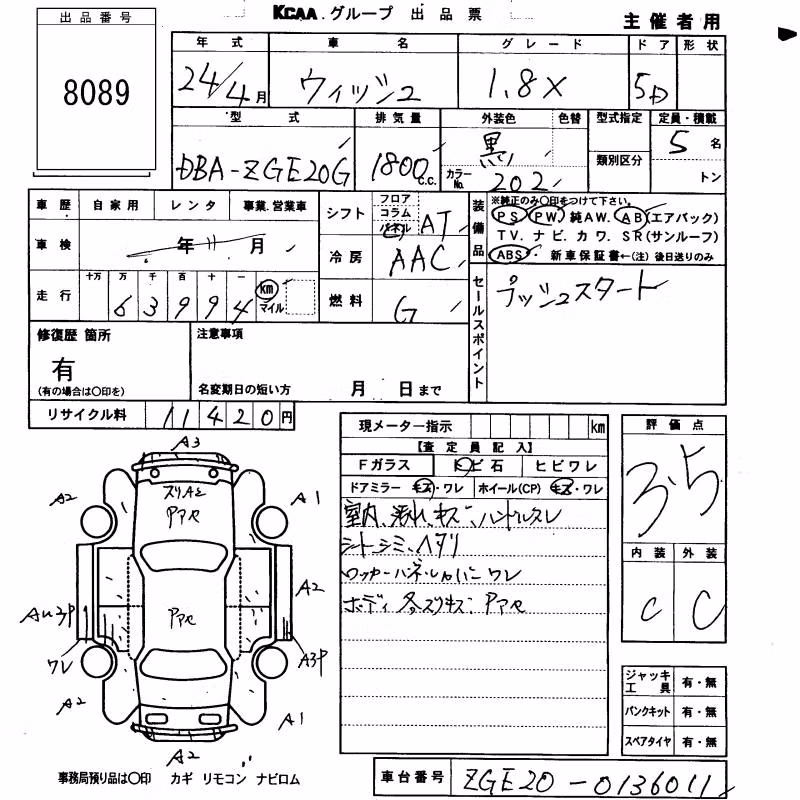 KCAA.グループ 出品票
主催者用
出品番号
8089
年式 車名 グレード ドア 形状
24/4月 ウィッシュ 1.8X 5D
型式 排気量 外装色 色替 型式指定 定員・積載
DBA-ZGE20G 1800c.c. 黒 類別区分 5名
カラーNo. 202 トン
車歴 自家用 レンタ 事業.営業車
シフト フロア コラム パネル AT
装備品 ※純正のみ○印をつけて下さい。
PS PW 純AW. AB(エアバック)
TV. ナビ.カワ. SR(サンルーフ)
ABS. 新車保証書←(注)後日送りのみ
車検 年11月
冷房 AAC
走行 十万 万 千 百 十 一
63994 km マイル
燃料 G
セールスポイント プッシュスタート
修復歴 箇所
有
(有の場合は○印を)
注意事項
名変期日の短い方 月 日まで
リサイクル料 11420円
現メーター指示 km
【査定員記入】
Fガラス トビ石 ヒビワレ
ドアミラー キズ・ワレ ホイール(CP) キズ・ワレ
室内、汚れ、キズ、ハンドルスレ
シートシミ、ヘタリ
ロッカーパネルカバー ワレ
ボディ 各スリキズ
評価点
3.5
内装 外装
C C
A3
スリキズ
A2 A1
A2
ワレ
A3P
A2 A1
A2
ジャッキ工具 有・無
パンクキット 有・無
スペアタイヤ 有・無
事務局預り品は○印 カギ リモコン ナビロム
車台番号 ZGE20-0136011